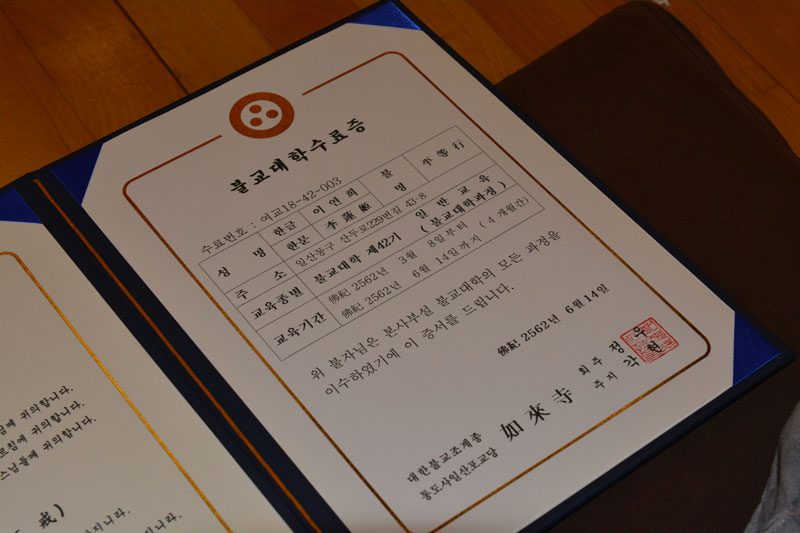 불교대학수료증
수료번호 : 여교18-42-003
성 명 한글 이연희 불명 平等行
한문 李蓮姬
주 소 일산동구 산두로229번길 43-8
교육종별 불교대학 제42기 일반교육 (불교대학과정)
교육기간 佛紀 2562년 3월 8일부터
佛紀 2562년 6월 14일까지 ( 4 개월간)
위 불자님은 본사부설 불교대학의 모든 과정을
이수하였기에 이 증서를 드립니다.
佛紀 2562년 6월 14일
대한불교조계종
통도사일산포교당
如來寺
회주 정우
주지 각현
귀의합니다.
귀의합니다.
귀의합니다.
戒)